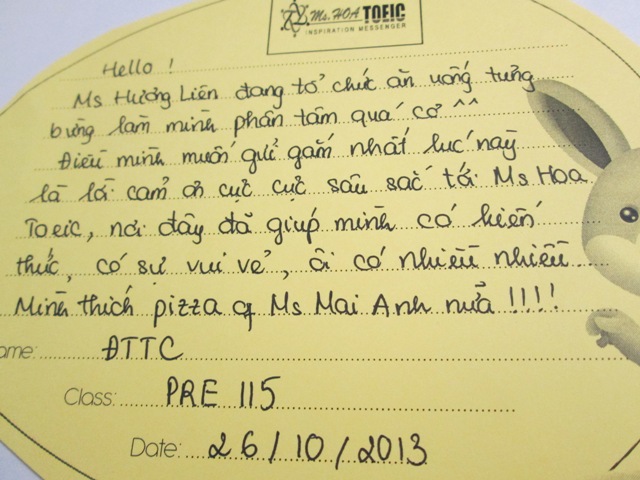 Ms. HOA TOEIC
INSPIRATION MESSENGER
Hello !
Ms Hương Liên đang tổ chức ăn uống tưng
bừng làm mình phân tâm quá cơ ^^
Điều mình muốn gửi gắm nhất lúc này
là lời cảm ơn cực cực sâu sắc tới Ms Hoa
Toeic, nơi đây đã giúp mình có kiến
thức, có sự vui vẻ, ôi có nhiều nhiều
Mình thích pizza of Ms Mai Anh nữa !!!!
ame: ĐTTC
Class: PRE 115
Date: 26/10/2013